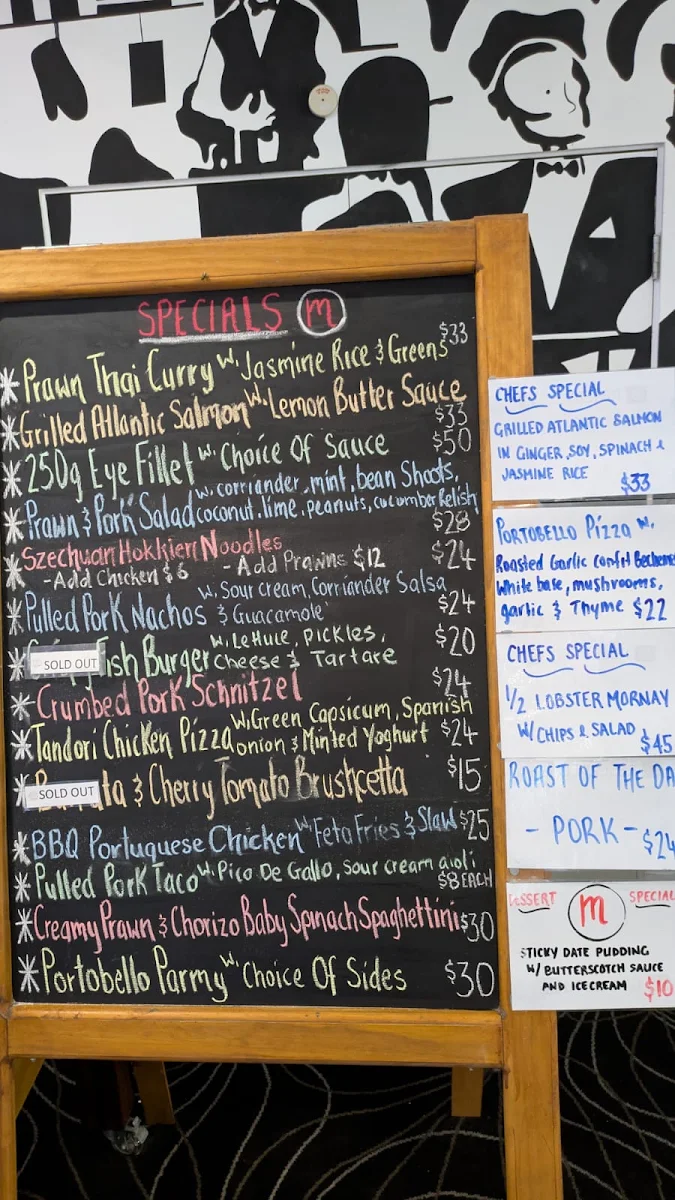 SPECIALS m
$33
*Prawn Thai Curry w. Jasmine Rice & Greens
*Grilled Atlantic Salmon w. Lemon Butter Sauce
$33
*250g Eye Fillet w. Choice Of Sauce $50
*Prawn & Pork Salad w. corriander, mint, bean Shoots,
coconut, lime, peanuts, cucumber Relish
$28
*Szechuan Hokkien Noodles $24
-Add Chicken $6 -Add Prawns $12
*Pulled Pork Nachos w. Sour cream, Corriander Salsa
& Guacamole $24
* SOLD OUT Fish Burger w. Lettuce, Pickles,
Cheese & Tartare $20
*Crumbed Pork Schnitzel $24
*Tandori Chicken Pizza w. Green Capsicum, Spanish
onion & Minted Yoghurt $24
* SOLD OUT ta & Cherry Tomato Brushcetta $15
*BBQ Portuguese Chicken w. Feta Fries & Slaw $25
*Pulled Pork Taco w. Pico De Gallo, Sour cream aioli
$8 EACH
*Creamy Prawn & Chorizo Baby Spinach Spaghettini $30
*Portobello Parmy w. Choice Of Sides $30
CHEFS SPECIAL
GRILLED ATLANTIC SALMON
IN GINGER, SOY, SPINACH &
JASMINE RICE $33
PORTOBELLO PIZZA w.
Roasted Garlic confit
White base, mushrooms,
garlic & Thyme $22
CHEFS SPECIAL
1/2 LOBSTER MORNAY
W/ CHIPS & SALAD $45
ROAST OF THE DA
- PORK - $24
DESSERT m SPECIAL
STICKY DATE PUDDING
W/ BUTTERSCOTCH SAUCE
AND ICECREAM $10